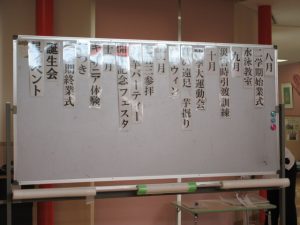 八月
二学期始業式
水泳教室
九月
災害時引渡訓練
十月
大運動会
遠足 芋掘り
ハロウィン
十一月
七五三参拝
パーティー
開園記念フェスタ
十二月
キッザニア体験
二学期終業式
誕生会
イベント